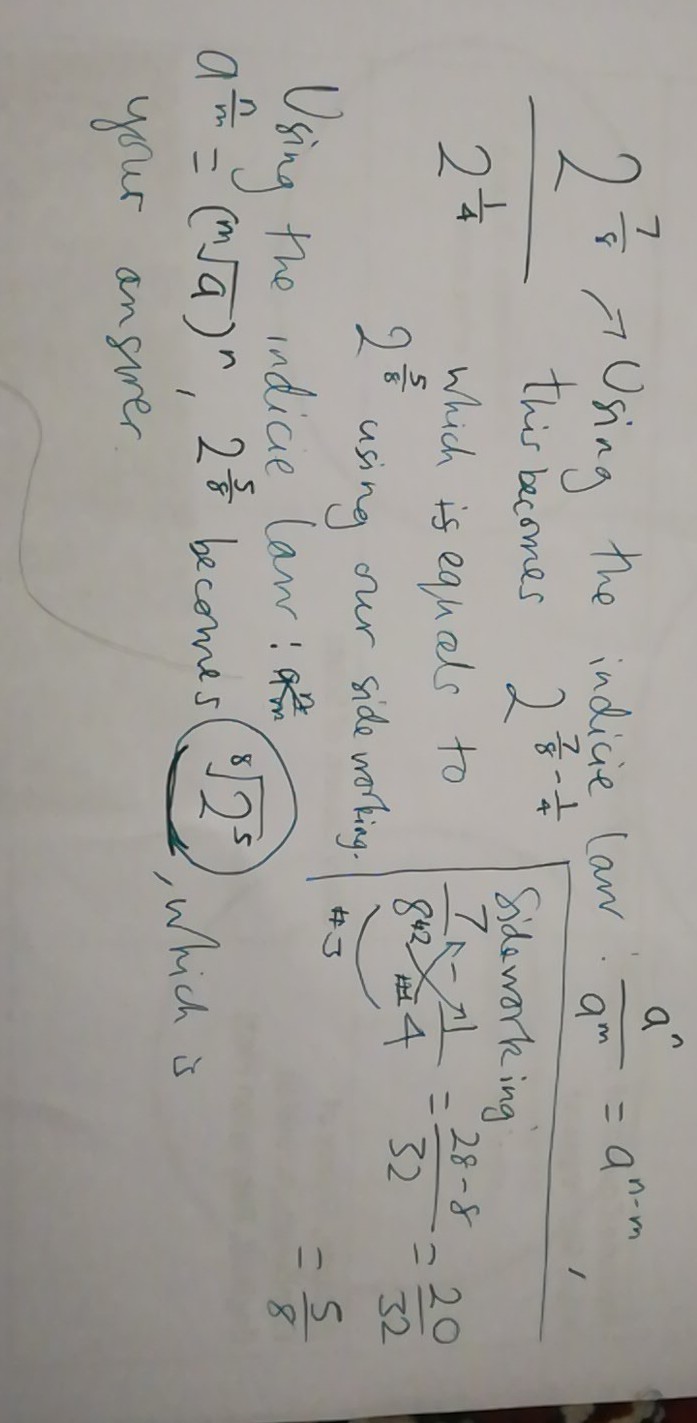 2^(7/8) → Using the indicie law : a^n/a^m = a^(n-m) ,
2^(1/4) this becomes 2^(7/8 - 1/4)
which is equals to
2^(5/8) using our side working.
Sideworking
7/8 - 1/4 = (28-8)/32 = 20/32
#2 #1
#3
= 5/8
Using the indicie law :
a^(n/m) = (m√a)^n , 2^(5/8) becomes 8√2^5 , which is
your answer.